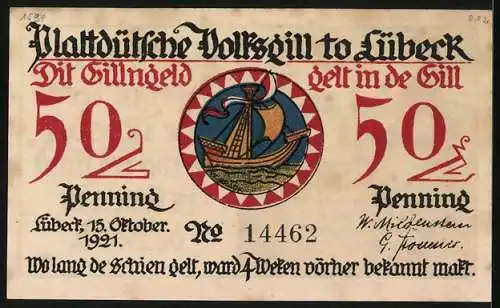 Plattdütsche Volksgill to Lübeck
Dit Gillngeld gelt in de Gill
50 50
Penning Penning
Lübeck, 15. Oktober.
1921.
No 14462
Wo lang de Schien gelt, ward 4 Weken vörher bekannt makt.